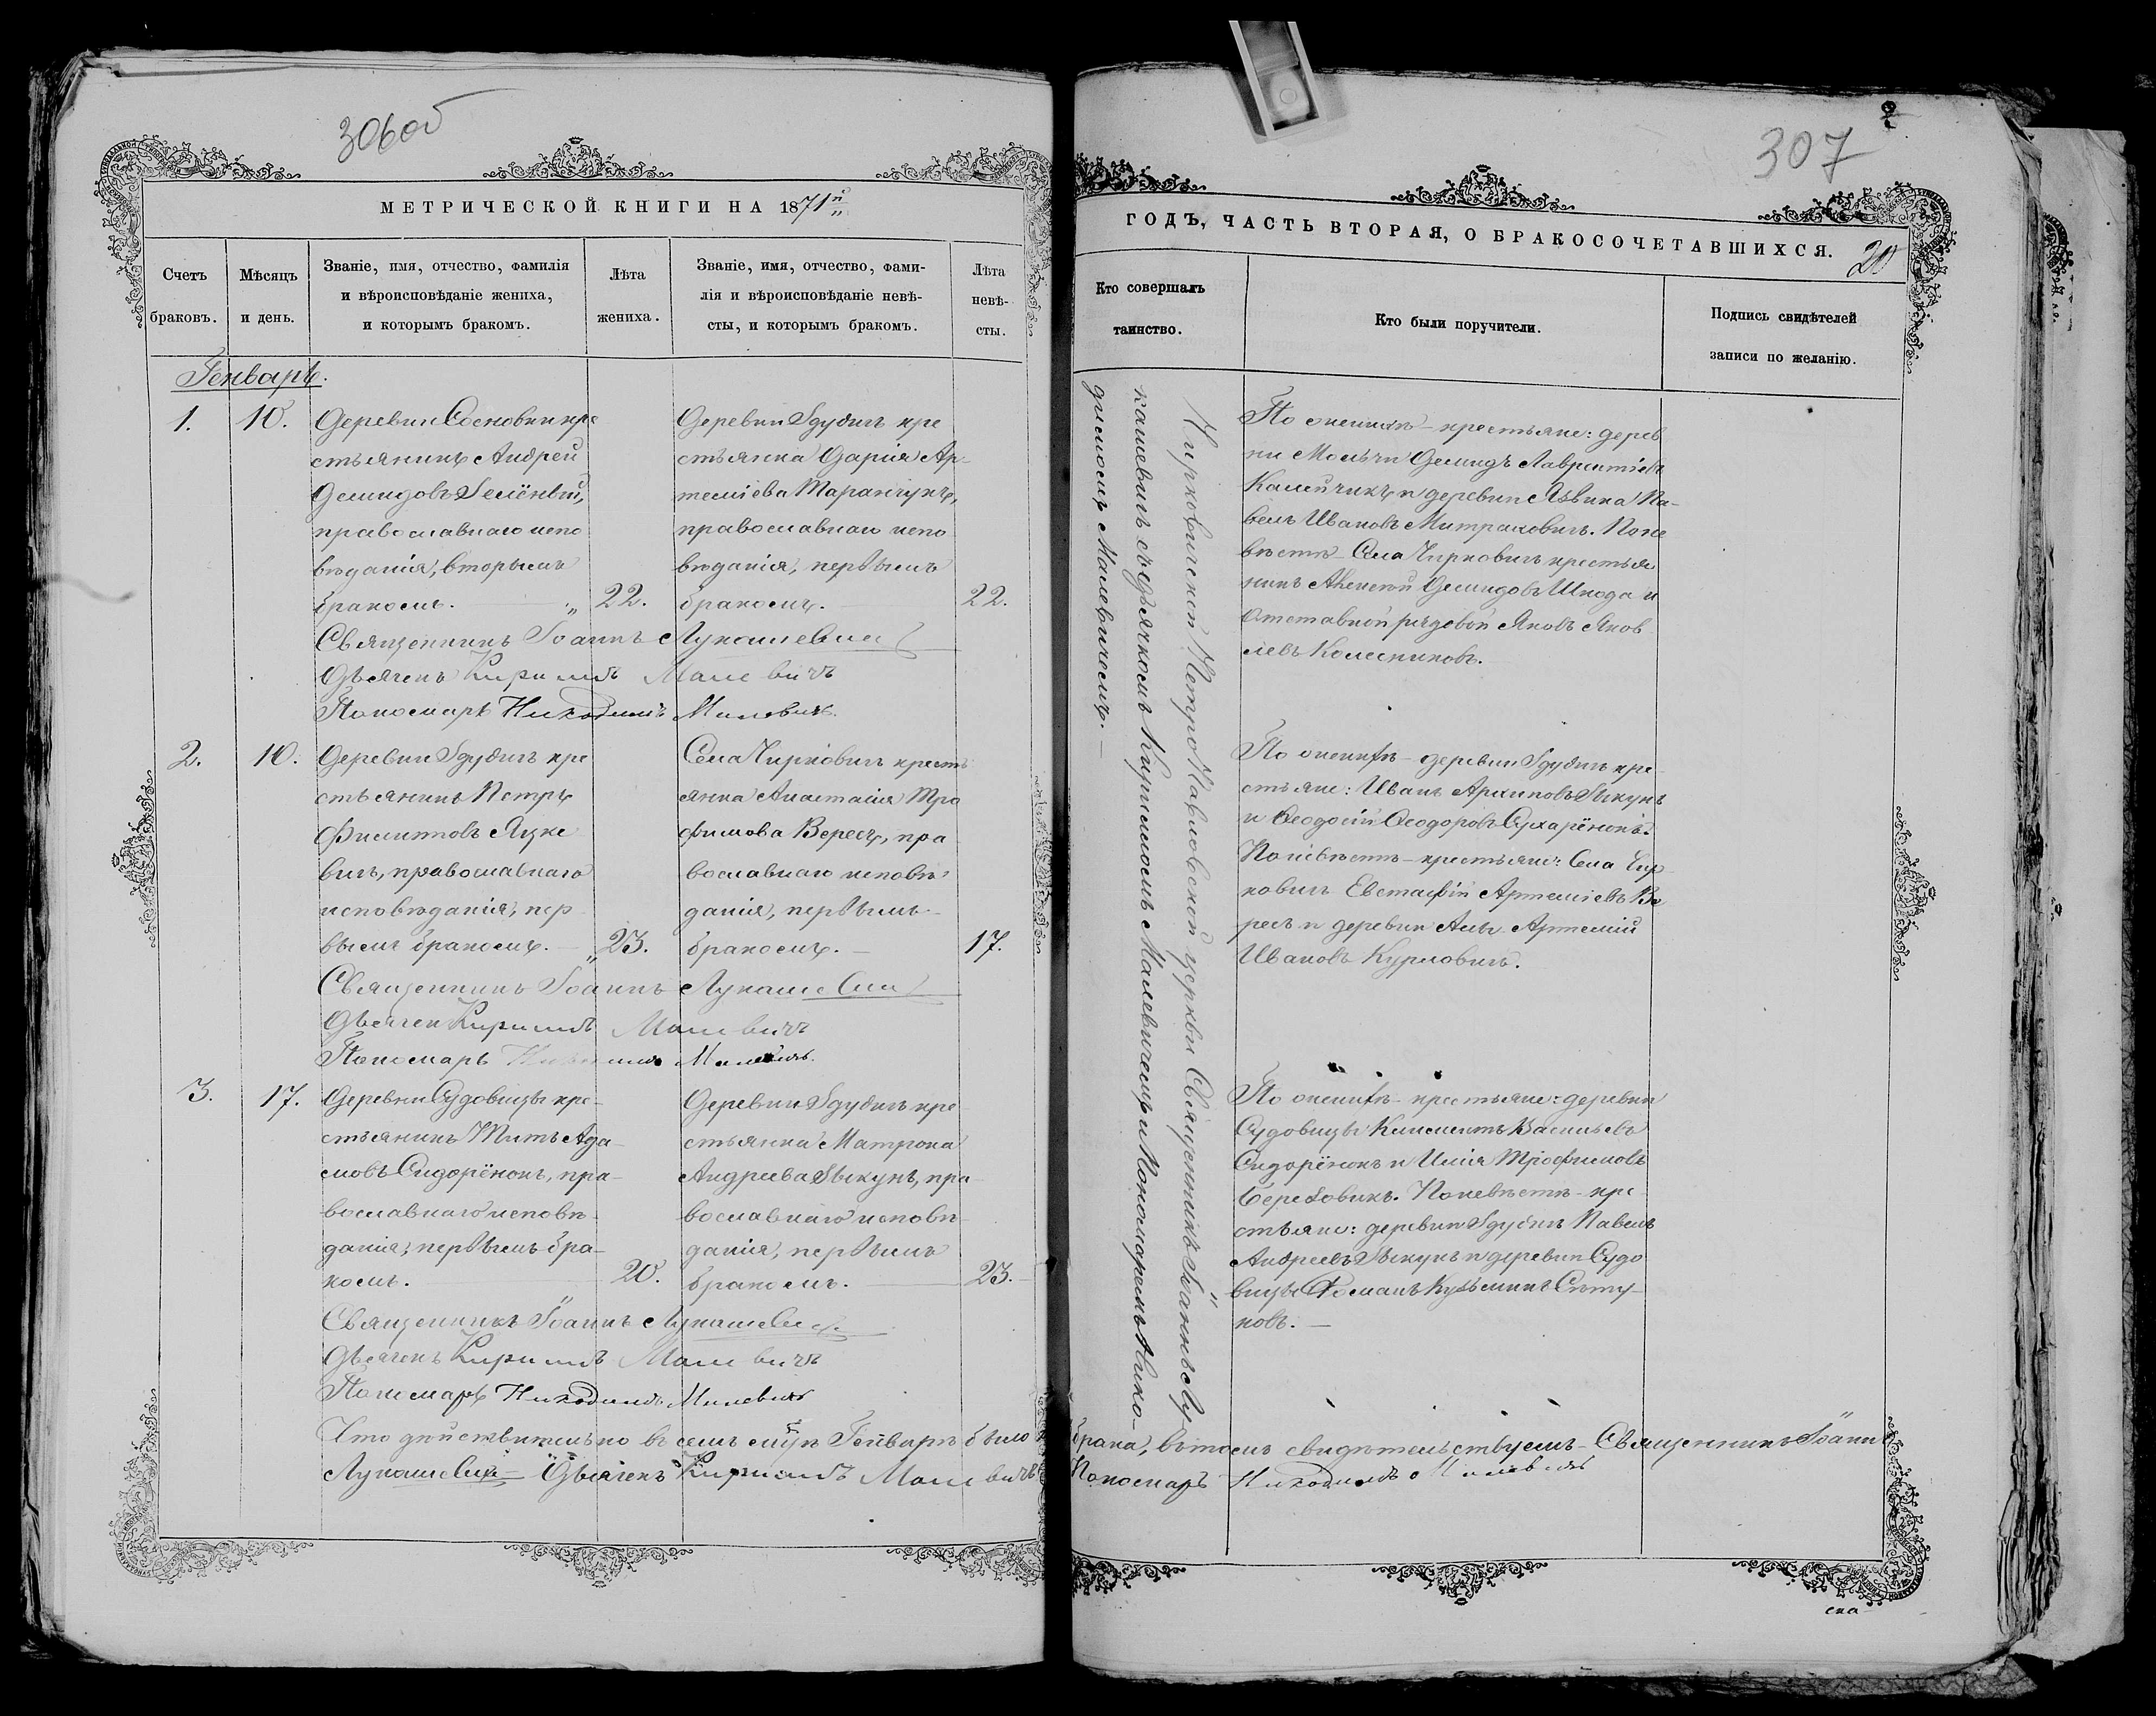 306об
МЕТРИЧЕСКОЙ КНИГИ НА 1871й
Счетъ браковъ.
Мѣсяцъ и день.
Званіе, имя, отчество, фамилія
и вѣроисповѣданіе жениха,
и которымъ бракомъ.
Лѣта жениха.
Званіе, имя, отчество, фами-
лія и вѣроисповѣданіе невѣ-
сты, и которымъ бракомъ.
Лѣта невѣ-
сты.
Генварь.
1. 10.
Деревни Сосновки кре
стьянинъ Андрей
Демидовъ Зелёнвій,
православнаго испо
вѣданія, вторымъ
бракомъ. — „ 22.
Деревни Здудичъ кре
стьянка Дарія Ар-
теміева Таранчукъ,
православнаго испо
вѣданія, первымъ
бракомъ. — 22.
Священникъ Іоаннъ Лукашевичъ
Дьячекъ Кириллъ Малевичъ
Пономарь Никодимъ Малевичъ.
2. 10.
Деревни Здудичъ кре
стьянинъ Петръ
Филиповъ Яцке
вичъ, православнаго
исповѣданія, пер
вымъ бракомъ. — „ 23.
Села Чирковичъ кресть
янка Анастасія Тро
фимова Вересъ, пра
вославнаго исповѣ
данія, первымъ
бракомъ. — 17.
Священникъ Іоаннъ Лукашевичъ
Дьячекъ Кириллъ Малевичъ
Пономарь Никодимъ Малевичъ.
3. 17.
Деревни Судовицы кре-
стьянинъ Титъ Ада-
мовъ Сидорёнокъ, пра-
вославнаго исповѣ-
данія, первымъ бра-
комъ. — 20.
Деревни Здудичъ кре-
стьянка Матрона
Андреева Зыкунъ, пра-
вославнаго исповѣ-
данія, первымъ
бракомъ. — 23.
Священникъ Іоаннъ Лукашевичъ
Дьячекъ Кириллъ Малевичъ
Пономарь Никодимъ Малевичъ
Что дѣйствительно въ семъ Генварѣ было
Лукашевичъ Дьячекъ Кириллъ Малевичъ
307
ГОДЪ, ЧАСТЬ ВТОРАЯ, О БРАКОСОЧЕТАВШИХСЯ.
20
Кто совершалъ
таинство.
Кто были поручители.
Подпись свидѣтелей
записи по желанію.
Чирковичской Петро Павловской церкви Священникъ Іоаннъ Лу-
кашевичъ съ дьячкомъ Кирилломъ Малевичемъ и Пономаремъ Нико-
димомъ Малевичемъ. —
По женихѣ – крестьяне: дерев
ни Демидъ Лаврентіевъ
и деревни Язвина Па-
велъ Ивановъ Митраховичъ. По не
вѣстѣ – Села Чирковичъ крестья
нинъ Алексей Демидовъ Шкода и
Отставной рядовой Яковъ Яков
левъ Колесниковъ.
По женихѣ – деревни Здудичъ кре
стьяне: Иванъ Архиповъ Зыкунъ
и Ѳеодосій Ѳеодоровъ Сухарёнокъ.
По невѣстѣ – крестьяне: Села Чир
ковичъ Евстафій Артеміевъ Ве
ресъ и деревни Артемій
Ивановъ Курловичъ.
По женихѣ – крестьяне: деревни
Судовицы Климентъ Васильевъ
Сидорёнокъ и Илія Трофимовъ
Березовикъ. По невѣстѣ – кре
стьяне: деревни Здудичъ Павелъ
Андреевъ Зыкунъ и деревни Судо
вицы Романъ Кузьминъ Ситу-
ковъ. —
брака, въ томъ свидѣтельствуемъ – Священникъ Іоаннъ
Пономарь Никодимъ Малевичъ